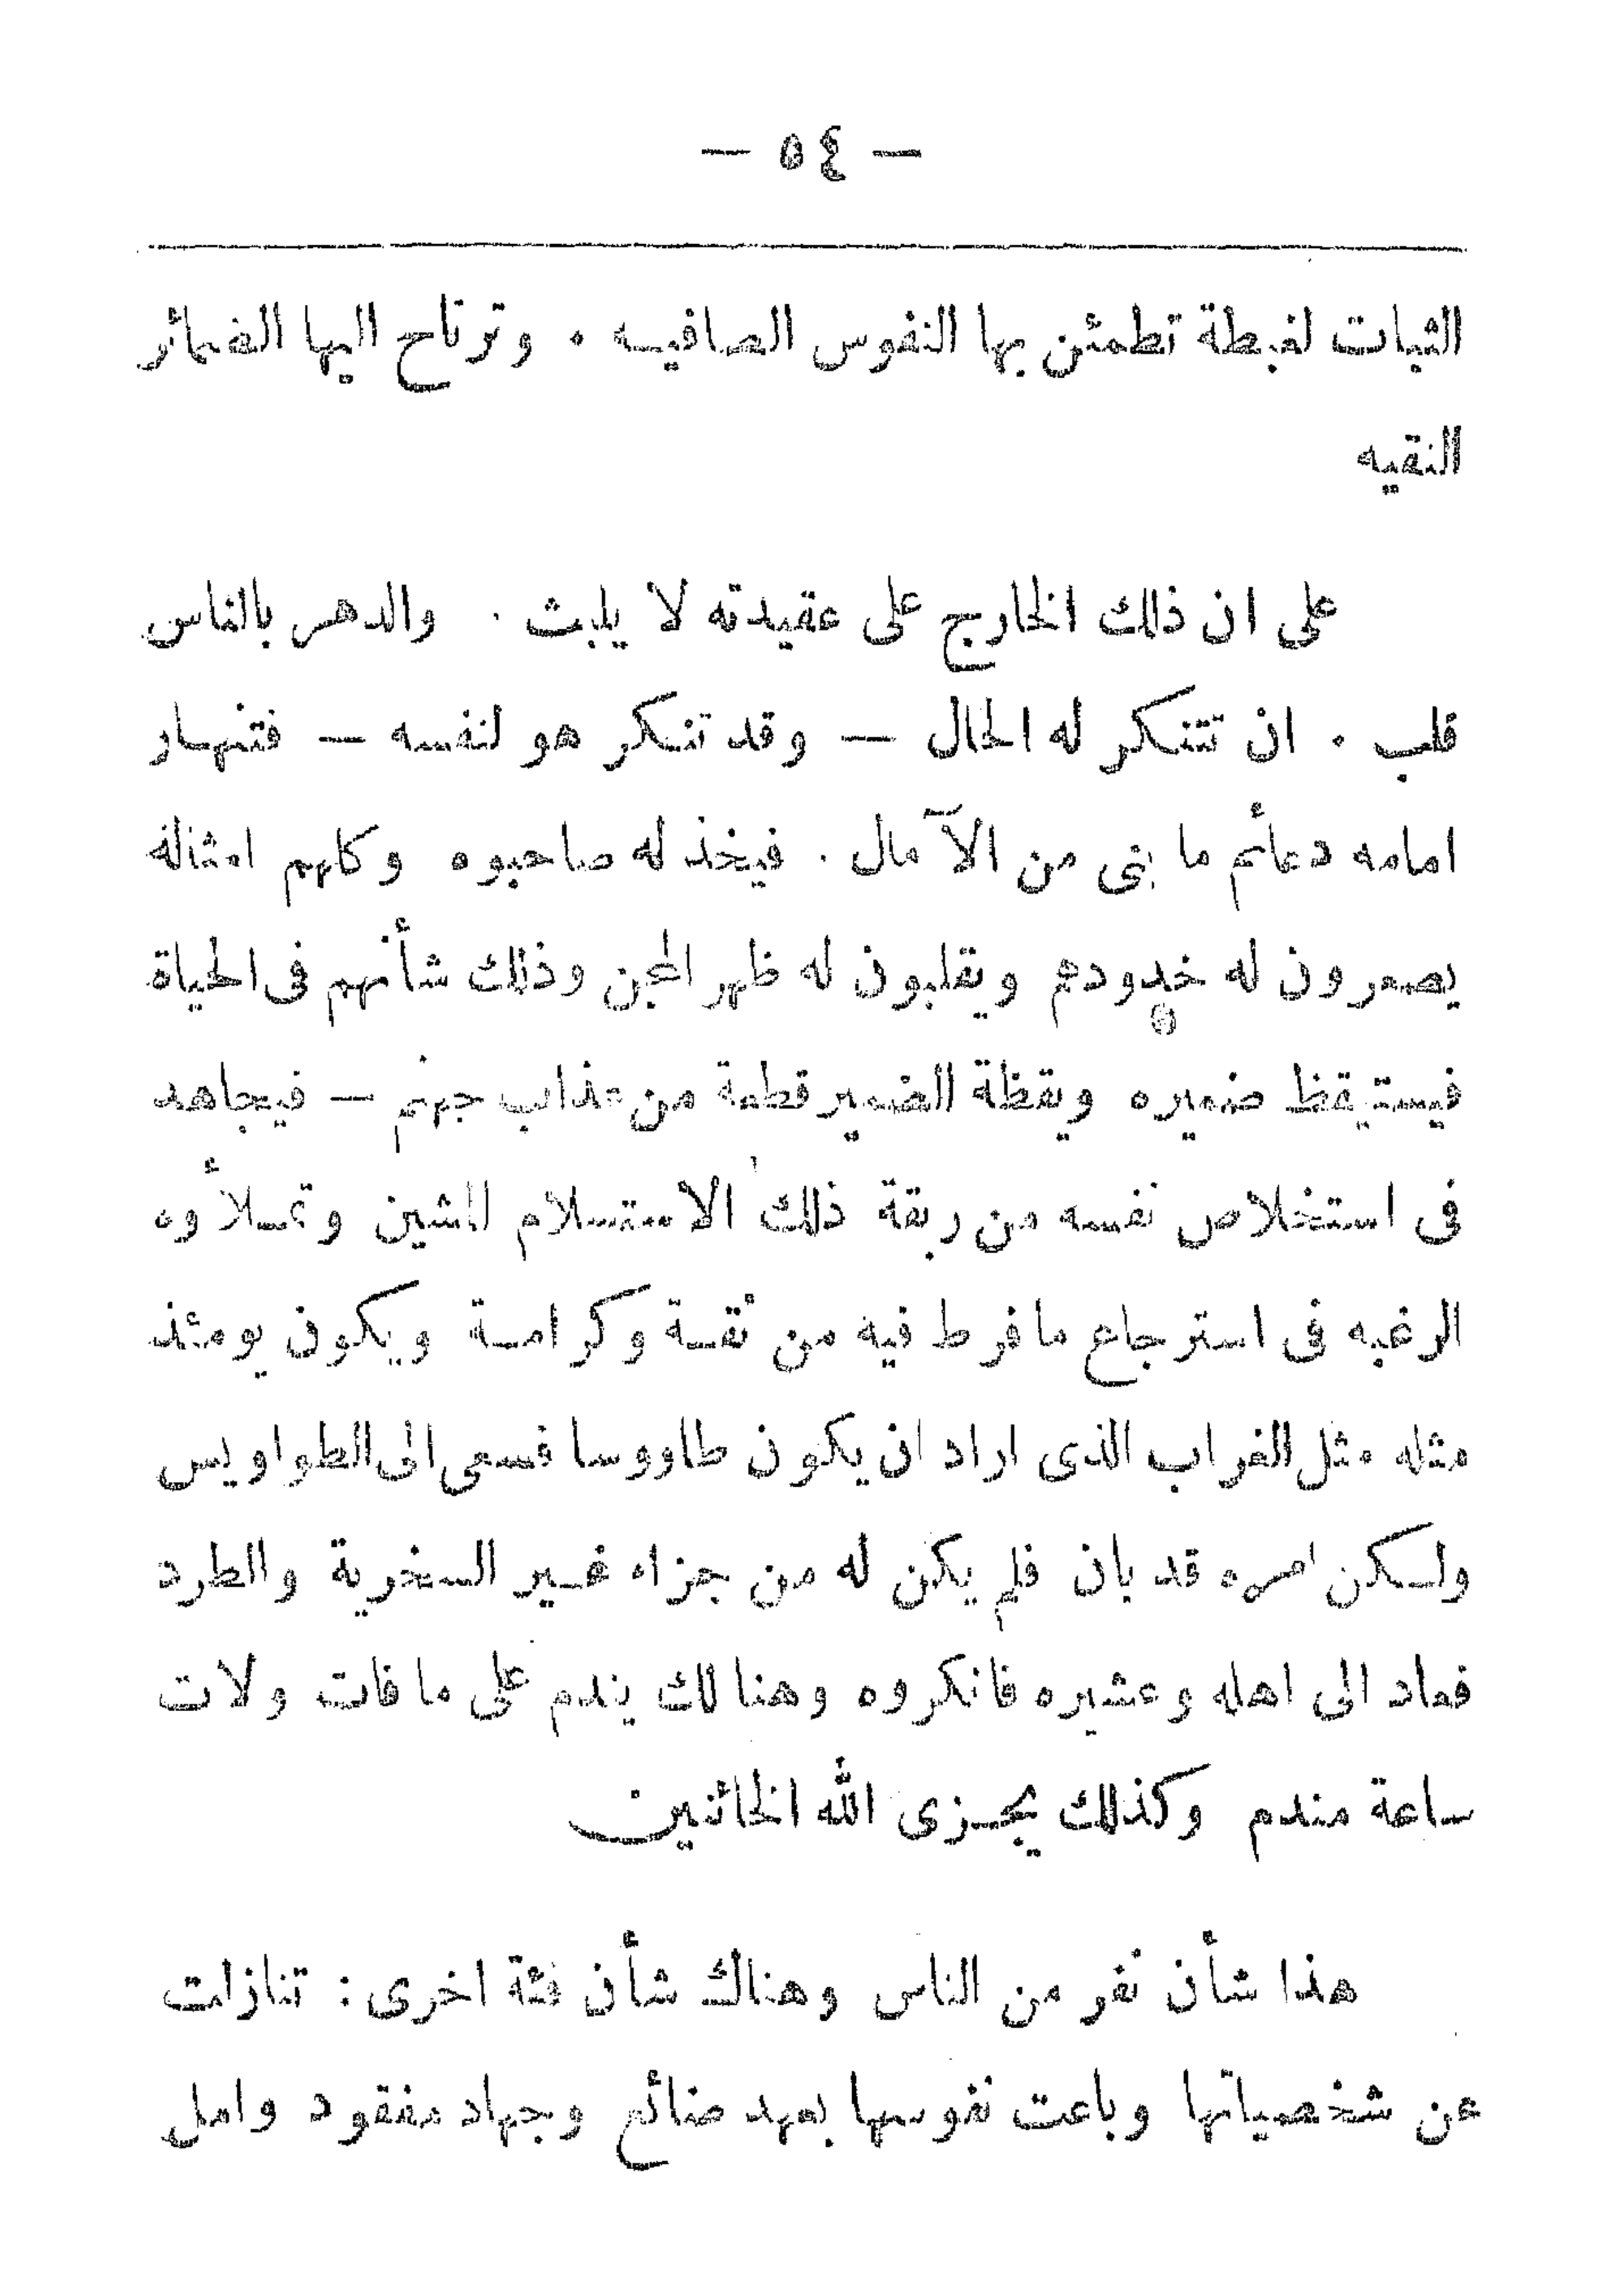 — ٥٤ —
الثبات لغبطة تطمئن بها النفوس الصافيه . وترتاح اليها الضمائر
النقيه
على ان ذلك الخارج على عقيدته لا يلبث . والدهر بالناس
قلب . ان تتنكر له الحال — وقد تنكر هو لنفسه — فتنهار
امامه دعائم ما بنى من الآمال . فيخذله صاحبوه وكلهم امثاله
يصعرون له خدودهم ويقلبون له ظهر المجن وذلك شأنهم فى الحياة
فيستيقظ ضميره ويقظة الضمير قطعة من عذاب جهنم — فيجاهد
فى استخلاص نفسه من ربقة ذلك الاستسلام المشين وتملأوه
الرغبه فى استرجاع ما فرط فيه من ثقة وكرامة ويكون يومئذ
مثله مثل الغراب الذى اراد ان يكون طاووسا فسعى الى الطواويس
ولكن امره قد بان فلم يكن له من جزاء غير السخرية والطرد
فعاد الى اهله وعشيره فانكروه وهنالك يندم على ما فات ولات
ساعة مندم وكذلك يجزى الله الخائنين
هذا شأن نفر من الناس وهناك شأن فئة اخرى : تنازلت
عن شخصياتها وباعت نفوسها بعهد ضائع وجهاد مفقود وامل